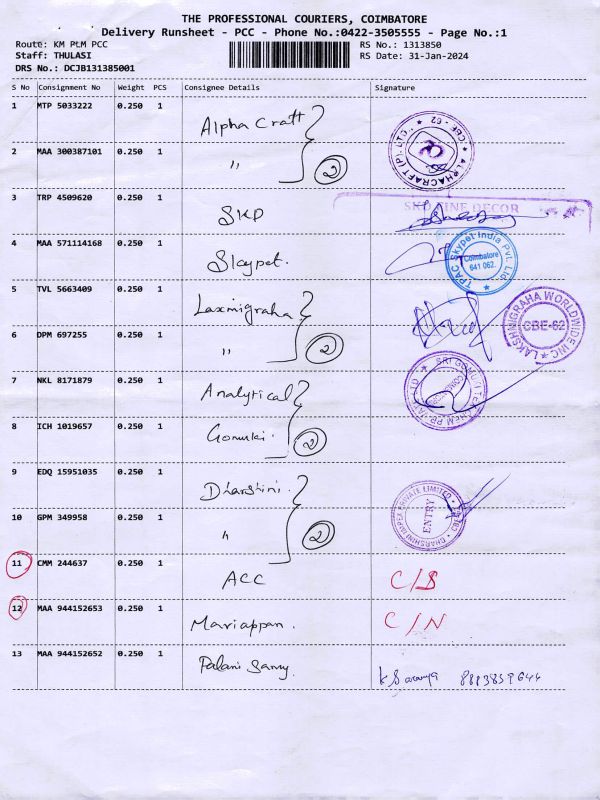 THE PROFESSIONAL COURIERS, COIMBATORE
Delivery Runsheet - PCC - Phone No.:0422-3505555 - Page No.:1
Route: KM PLM PCC
Staff: THULASI
DRS No.: DCJB131385001
RS No.: 1313850
RS Date: 31-Jan-2024
S No Consignment No Weight PCS Consignee Details Signature
1 MTP 5033222 0.250 1 Alpha Craft
ALPHACRAFT (P) LTD., CBE - 62
2 MAA 300387101 0.250 1 " 2
3 TRP 4509620 0.250 1 SKD
SKD FINE DECOR
4 MAA 571114168 0.250 1 Skypet.
TPAC Skypet India Pvt. Ltd
Coimbatore
641 062.
5 TVL 5663409 0.250 1 Laxmigraha
LAKSHNIGRAHA WORLDWIDE INC
CBE-62
6 DPM 697255 0.250 1 " 2
7 NKL 8171879 0.250 1 Analytical
SRI GOMUKI
8 ICH 1019657 0.250 1 Gomuki. 2
9 EDQ 15951035 0.250 1 Dharshini.
DHARSHINI IMPEX PRIVATE LIMITED
ENTRY
10 GPM 349958 0.250 1 " 2
11 CMM 244637 0.250 1 ACC C/S
12 MAA 944152653 0.250 1 Mariappan. C/N
13 MAA 944152652 0.250 1 Palani Samy. K Saranya